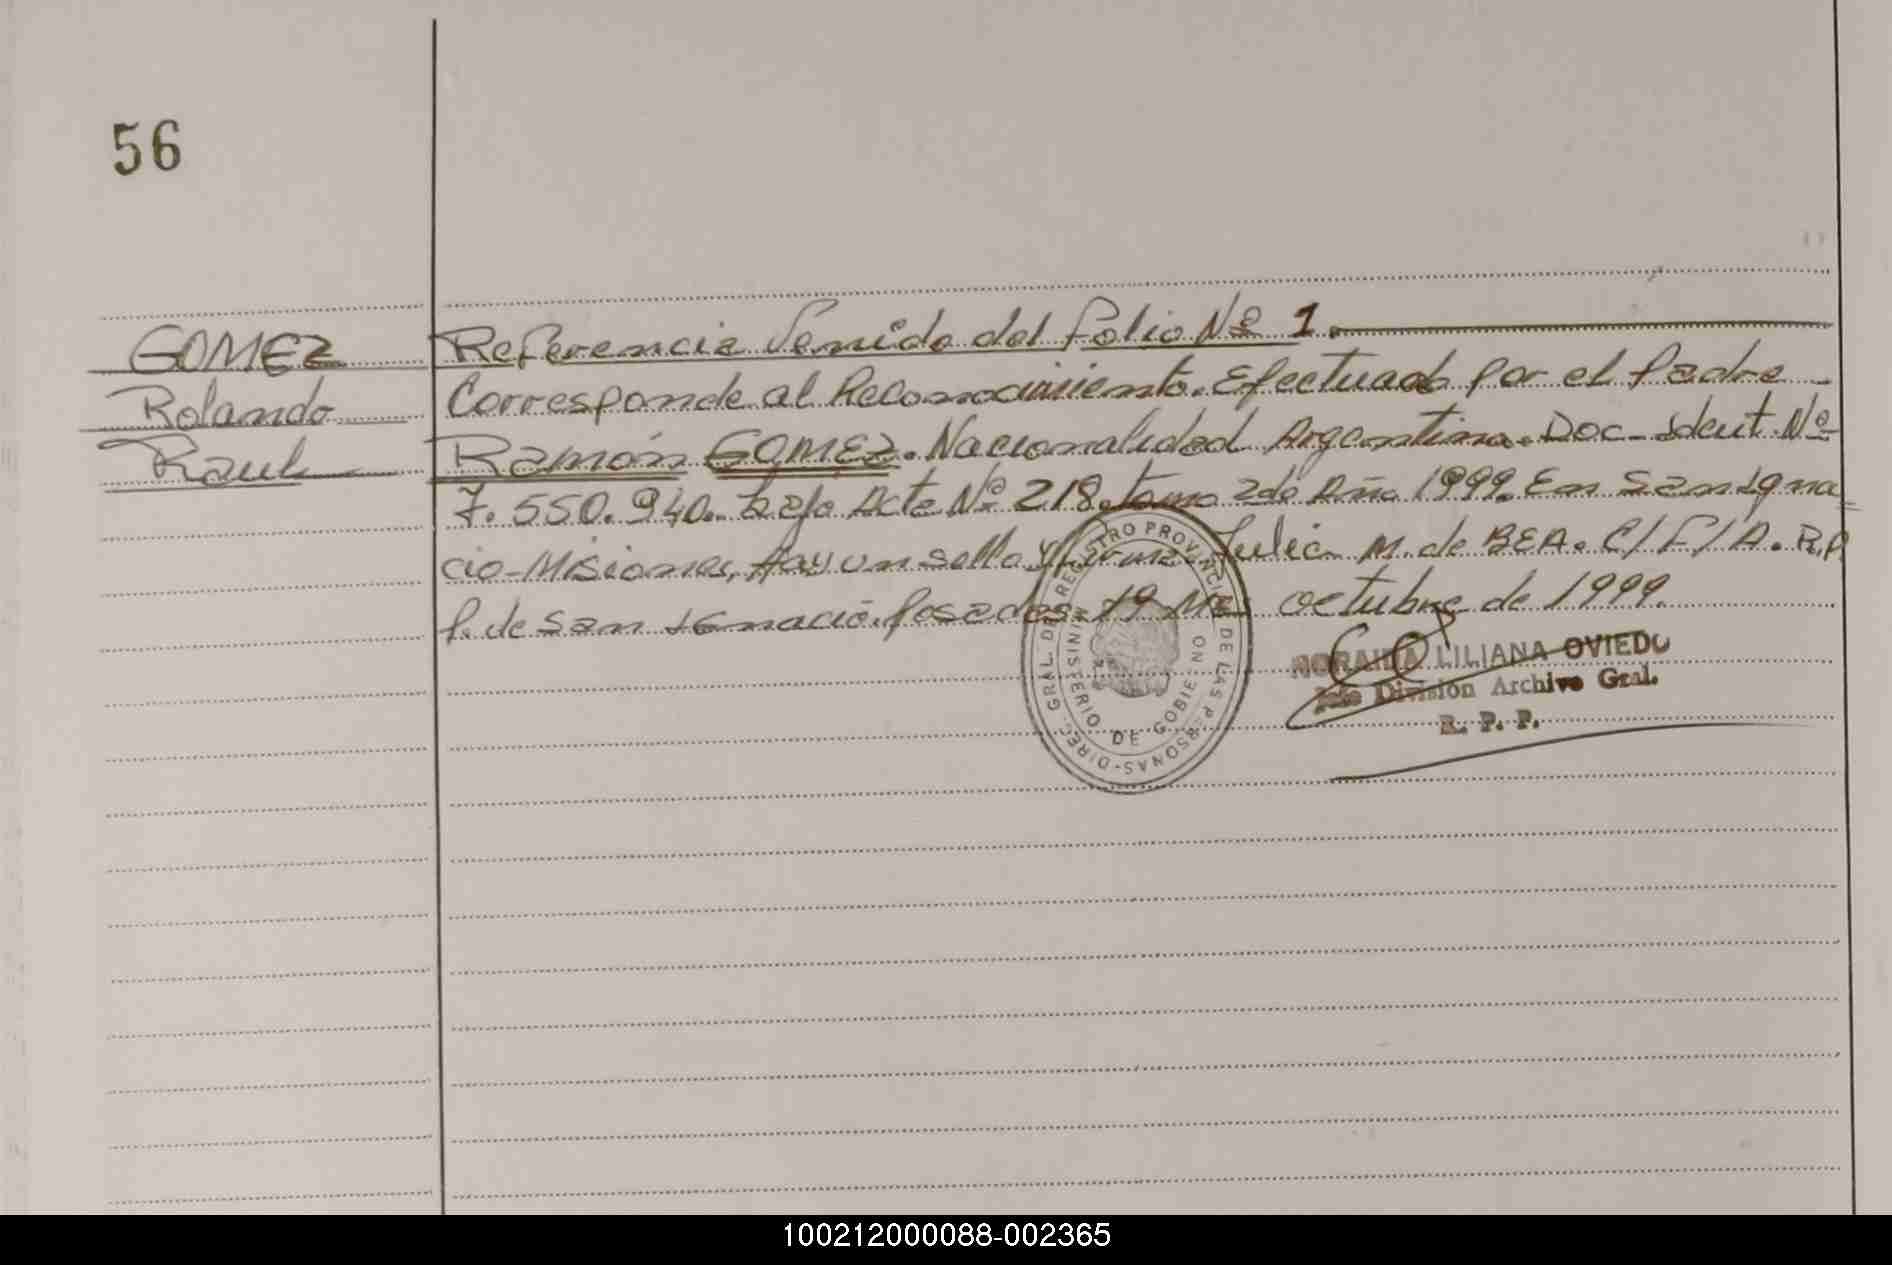 56
GOMEZ
Rolando
Raul
Referencia Venida del folio Nº 1.
Corresponde al Reconocimiento. Efectuado por el padre
Ramón GOMEZ. Nacionalidad Argentina. Doc. Ident. Nº
7.550.940. bajo Acta Nº 218. tomo 2do Año 1999. En San Igna=
cio-Misiones, Hay un sello y firma. Julia M. de BEA. C/F/A. R.P.
P. de San Ignacio. Posadas, 19 octubre de 1999.
NORAIDA LILIANA OVIEDO
Jefe División Archivo Gral.
R. P. P.
DIREC. GRAL. DEL REGISTRO PROVINCIAL DE LAS PERSONAS
MINISTERIO DE GOBIERNO
100212000088-002365